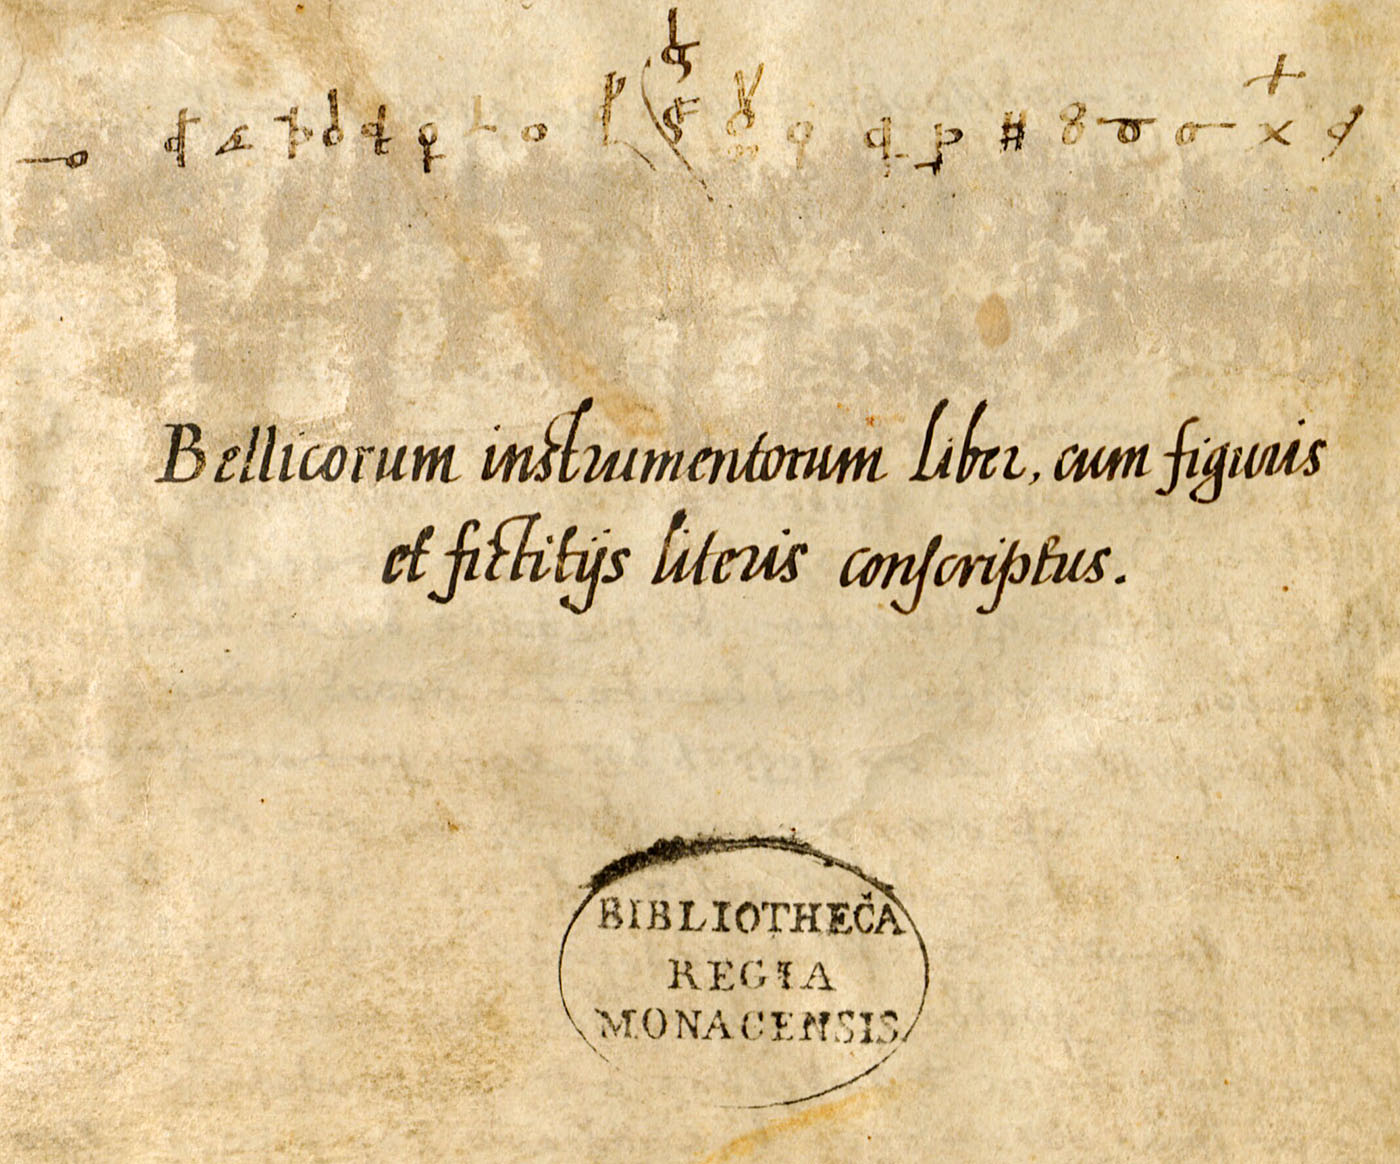 Bellicorum instrumentorum liber, cum figuris
et fictitijs literis conscriptus.
BIBLIOTHECA
REGIA
MONACENSIS